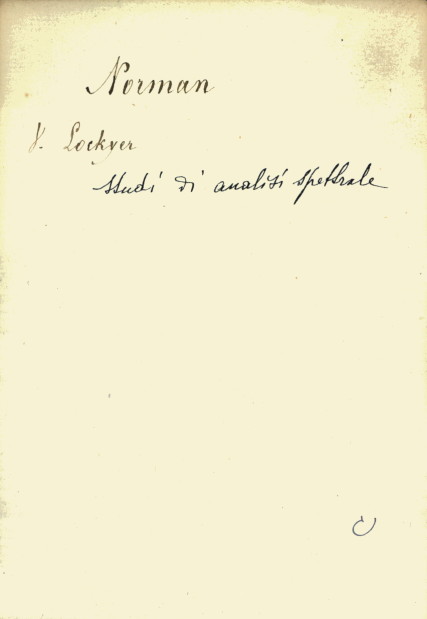 Norman
V. Lockyer
studi di analisi spettrale